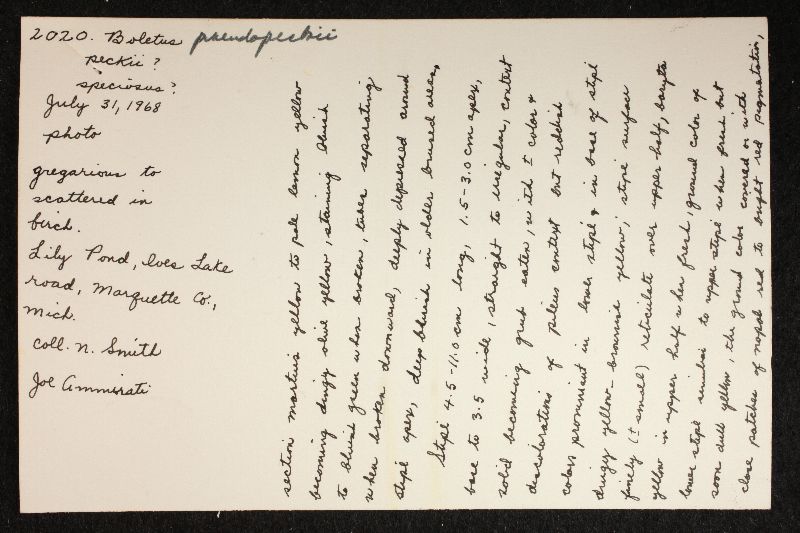 2020. Boletus pseudopeckii
peckii?
speciosus?
July 31, 1968
photo
gregarious to
scattered in
birch.
Lily Pond, Ives Lake
road, Marquette Co.,
Mich.
coll. N. Smith
Joe Ammirati
section martius yellow to pale lemon yellow
becoming dingy olive yellow, staining bluish
to bluish green when broken, tubes separating
when broken downward, deeply depressed around
stipe apex, deep bluish in older bruised areas.
Stipe 4.5-11.0 cm long, 1.5-3.0 cm apex,
base to 3.5 wide, straight to irregular, context
solid becoming grub eaten, with ± color &
discolorations of pileus context but reddish
colors prominent in lower stipe & in base of stipe
dingy yellow-brownish yellow; stipe surface
finely (± small) reticulate over upper half, baryta
yellow in upper half when fresh, ground color of
lower stipe similar to upper stipe when fresh but
soon dull yellow, the ground color covered or with
close patches of nopal red to bright red pigmentation,